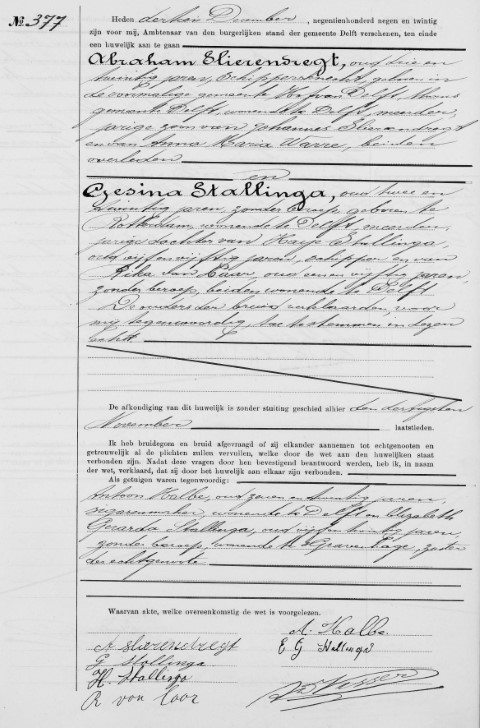 № 377
Heden derden December, negentienhonderd negen en twintig
zijn voor mij, Ambtenaar van den burgerlijken stand der gemeente Delft verschenen, ten einde
een huwelijk aan te gaan
Abraham Slierendregt, oud drie en
twintig jaren, schippersknecht, geboren in
de voormalige gemeente Hof van Delft, thans
gemeente Delft, wonende te Delft, meerder-
jarige zoon van Johannes Slierendregt
en van Anna Maria Warre, beiden
overleden
en
Gesina Stallinga, oud twee en
twintig jaren, zonder beroep, geboren te
Rotterdam, wonende te Delft, meerder-
jarige dochter van Haije Stallinga,
oud vijf en vijftig jaren, schipper en van
Rika van Laar, oud een en vijftig jaren,
zonder beroep, beiden wonende te Delft
De ouders der bruid verklaarden, voor
mij tegenwoordig, toe te stemmen in dezen
echt.
De afkondiging van dit huwelijk is zonder stuiting geschied alhier den dertigsten
November laatstleden.
Ik heb bruidegom en bruid afgevraagd of zij elkander aannemen tot echtgenooten en
getrouwelijk al de plichten zullen vervullen, welke door de wet aan den huwelijken staat
verbonden zijn. Nadat deze vragen door hen bevestigend beantwoord werden, heb ik, in naam
der wet, verklaard, dat zij door het huwelijk aan elkaar zijn verbonden.
Als getuigen waren tegenwoordig:
Antoon Halbe, oud zeven en twintig jaren,
sigarenmaker, wonende te Delft en Elizabeth
Gerarda Stallinga, oud vijf en twintig jaren,
zonder beroep, wonende te 's Gravenhage, zuster
der echtgenoote
Waarvan akte, welke overeenkomstig de wet is voorgelezen.
A. Halbe
A Slierendregt
E G Stallinga
G Stallinga
H. Stallinga
R van Laar